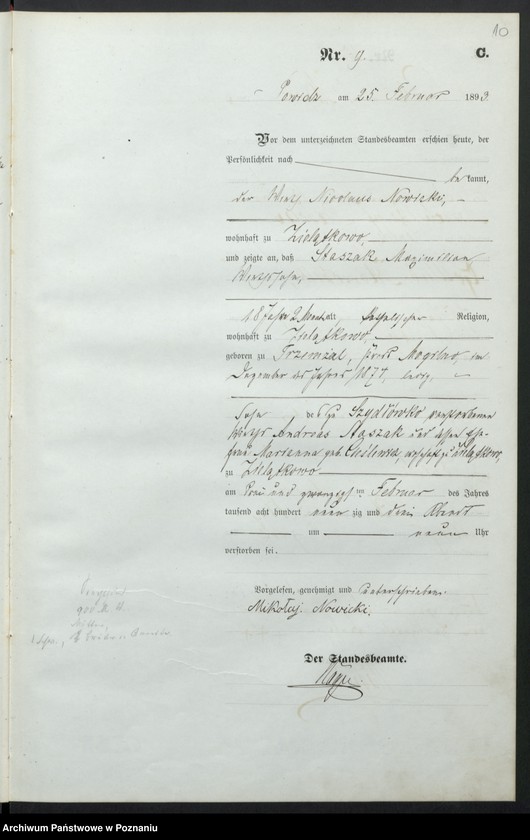 10
Nr. 9. C.
Powidz am 25. Februar 1893.
Vor dem unterzeichneten Standesbeamten erschien heute, der
Persönlichkeit nach
be kannt,
der Wirth Nicolaus Nowicki,
wohnhaft zu Zielątkowo,
und zeigte an, daß Staszak Maximilian
Wirthssohn,
18 Jahre 2 Monat alt, katholischer Religion,
wohnhaft zu Zielątkowo
geboren zu Trzemżal, Kreis Mogilno, im
Dezember des Jahres 1874, ledig,
Sohn des zu Szydłówko verstorbenen
Wirths Andreas Staszak und dessen Ehe-
frau Marianna geb. wohnhaft zu Zielątkowo,
zu Zielątkowo
am drei und zwanzigsten Februar des Jahres
tausend acht hundert neun zig und drei Abends
um neun Uhr
verstorben sei.
Vorgelesen, genehmigt und unterschrieben
Mikołaj Nowicki.
Der Standesbeamte.
Archiwum Państwowe w Poznaniu